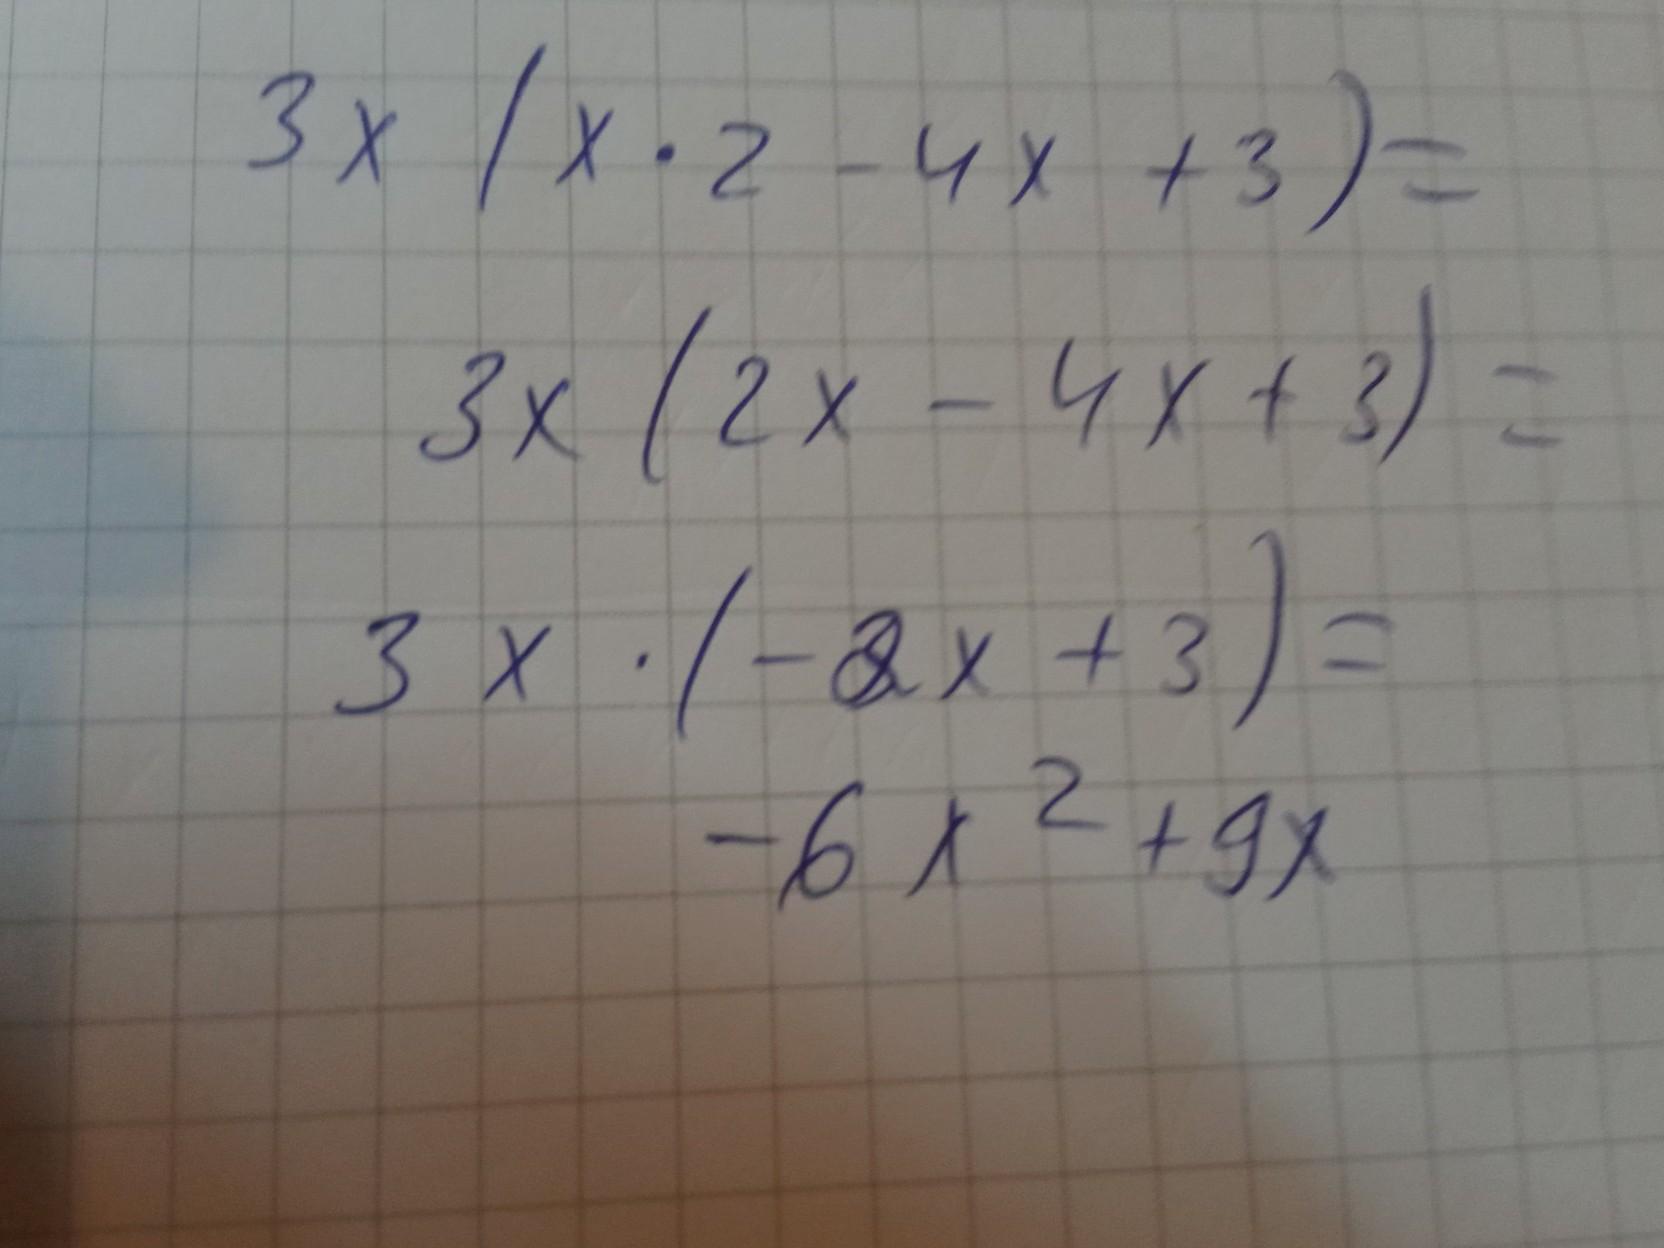 3x(x·2-4x+3)=
3x(2x-4x+3)=
3x·(-2x+3)=
-6x²+9x